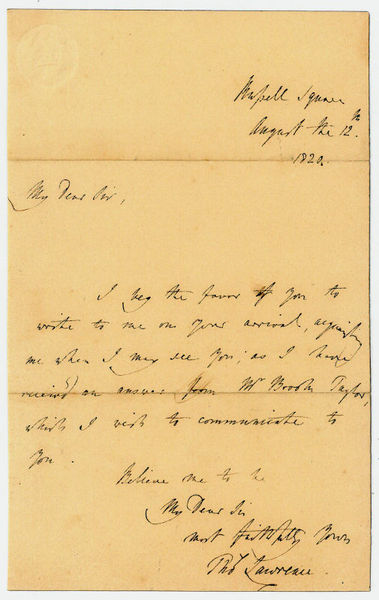 Russell Square
August the 12th.
1820.
My Dear Sir,
I beg the favor of you to
write to me on your arrival, acquainting
me when I may see you; as I have
receiv'd an answer from Mr Brook Taylor,
which I wish to communicate to
you.
Believe me to be
My Dear Sir
most faithfully Yours
Thos Lawrence.